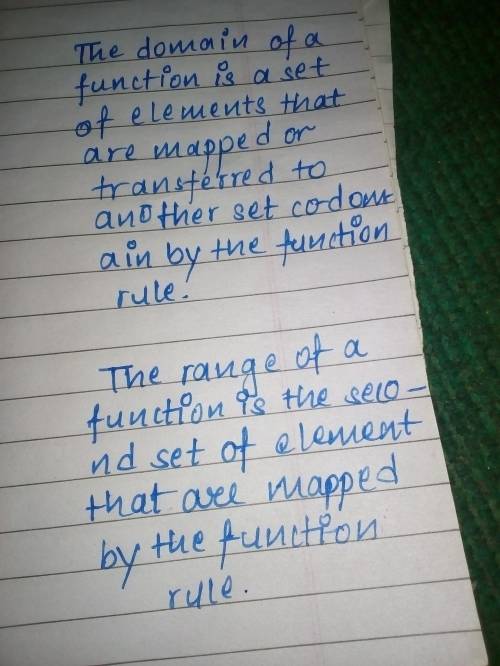 The domain of a
function is a set
of elements that
are mapped or
transferred to
another set co-dom
ain by the function
rule.
The range of a
function is the seco-
nd set of element
that are mapped
by the function
rule.